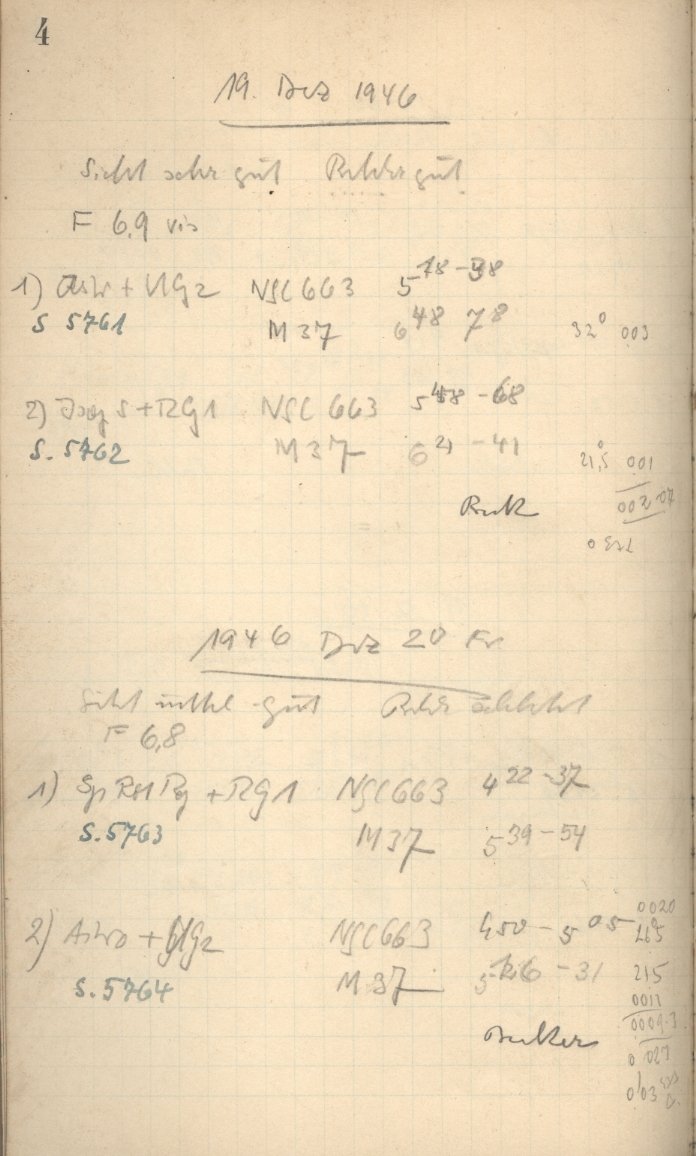 4
19. Dez 1946
Sicht sehr gut Bilder gut
F 6,9 vis
1) + UG2 NGC 663 5 18 - 38
S 5761 M 37 6 48 78 32° 003
2) S + RG1 NGC 663 5 48 - 68
S. 5762 M 37 6 21 - 41 21,5° 001
002 07
0
1946 Dez 20 Fr.
Sicht mittel gut Bilder schlecht
F 6,8
1) + RG1 NGC 663 4 22 - 37
S. 5763 M 37 5 39 - 54
0020
2) Astro + UG2 NGC 663 4 50 - 5 05
S. 5764 M 37 5 16 - 31 215
0011
Becker
0 027
0,03